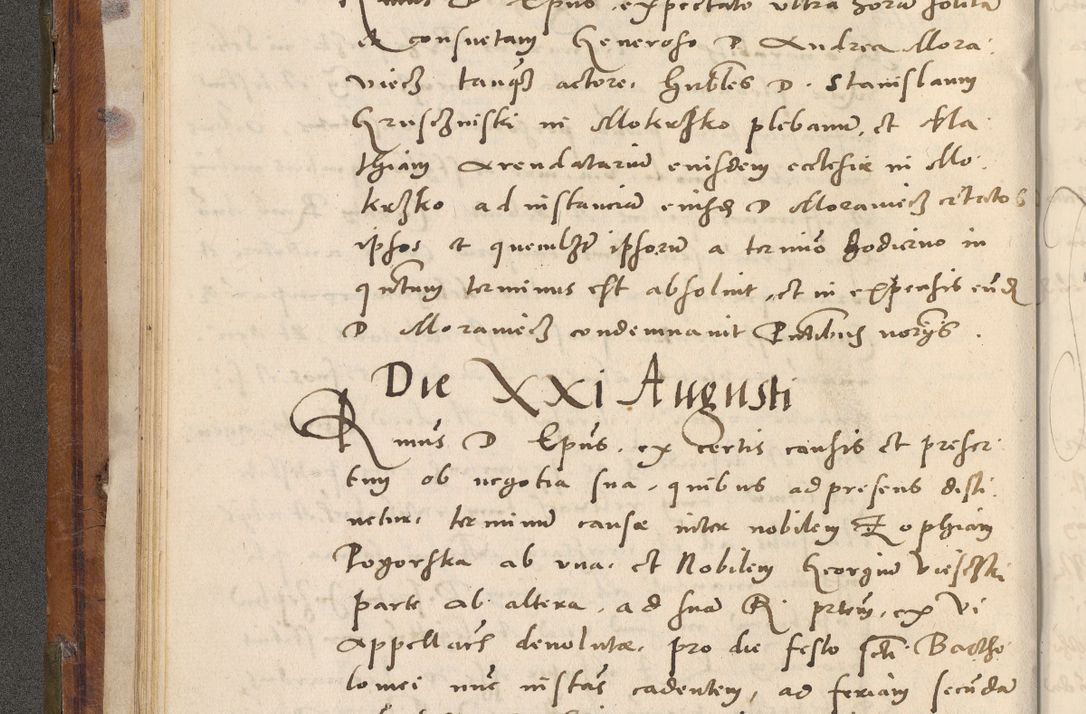 Rmus D Epus, expectato ultra horam solitam
et consuetam Generoso D Andrea Mora
viecz tanq actore, Hnbles D. Stanislaum
Gruschniski in Mokrsko plebanum, et Ma
thiam Arendatarium eiusdem ecclesiæ in Mo
krzko ad instanciam eiusd D Moraviecz citatos
ipsos et quemlibet ipsorum a termino hodierno in
qntum terminus est absolvit, et in expensis eund
D Moraviecz condemnavit Pntibus
Die XXI Augusti
Rmus D Epus, ex certis causis et preser
tim ob negotia sua, quibus ad presens disti
netur, terminum causæ inter nobilem Zophiam
Pogorska ab una, et Nobilem Georgium
parte ab altera, ad suam R. prtem, ex vi
Appellacis devolutæ, pro die festo scti Bartho
lomei nunc instans cadentem, ad feriam secunda